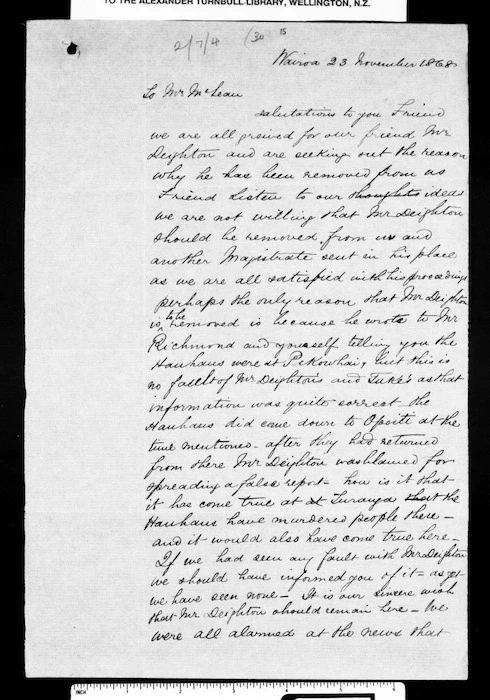 TO THE ALEXANDER TURNBULL LIBRARY, WELLINGTON, N.Z.
2/7/4 (30 15
Wairoa 23 November 1868
To Mr McLean
salutations to you Friend
we are all greived for our friend Mr
Deighton and are seeking out the reason
why he has been removed from us
Friend Listen to our thoughts ideas
we are not willing that Mr Deighton
should be removed from us and
another Magistrate sent in his place
as we are all satisfied with his proceedings
perhaps the only reason that Mr Deighton
is to be removed is because he wrote to Mr
Richmond and yourself telling you the
Hauhaus were at Pukowhai, but this is
no fault of Mr Deightons and Tuke's as that
information was quite correct the
Hauhaus did come down to Opoiti at the
time mentioned - after they had returned
from there Mr Deighton was blamed for
spreading a false report - how is it that
it has come true at at Turanga that the
Hauhaus have murdered people there -
and it would also have come true here -
If we had seen any fault with Mr Deighton
we should have informed you of it - as yet
we have seen none - It is our sincere wish
that Mr Deighton should remain here - We
were all alarmed at the news that
INCH 1 2 3 4 5 6 7 8